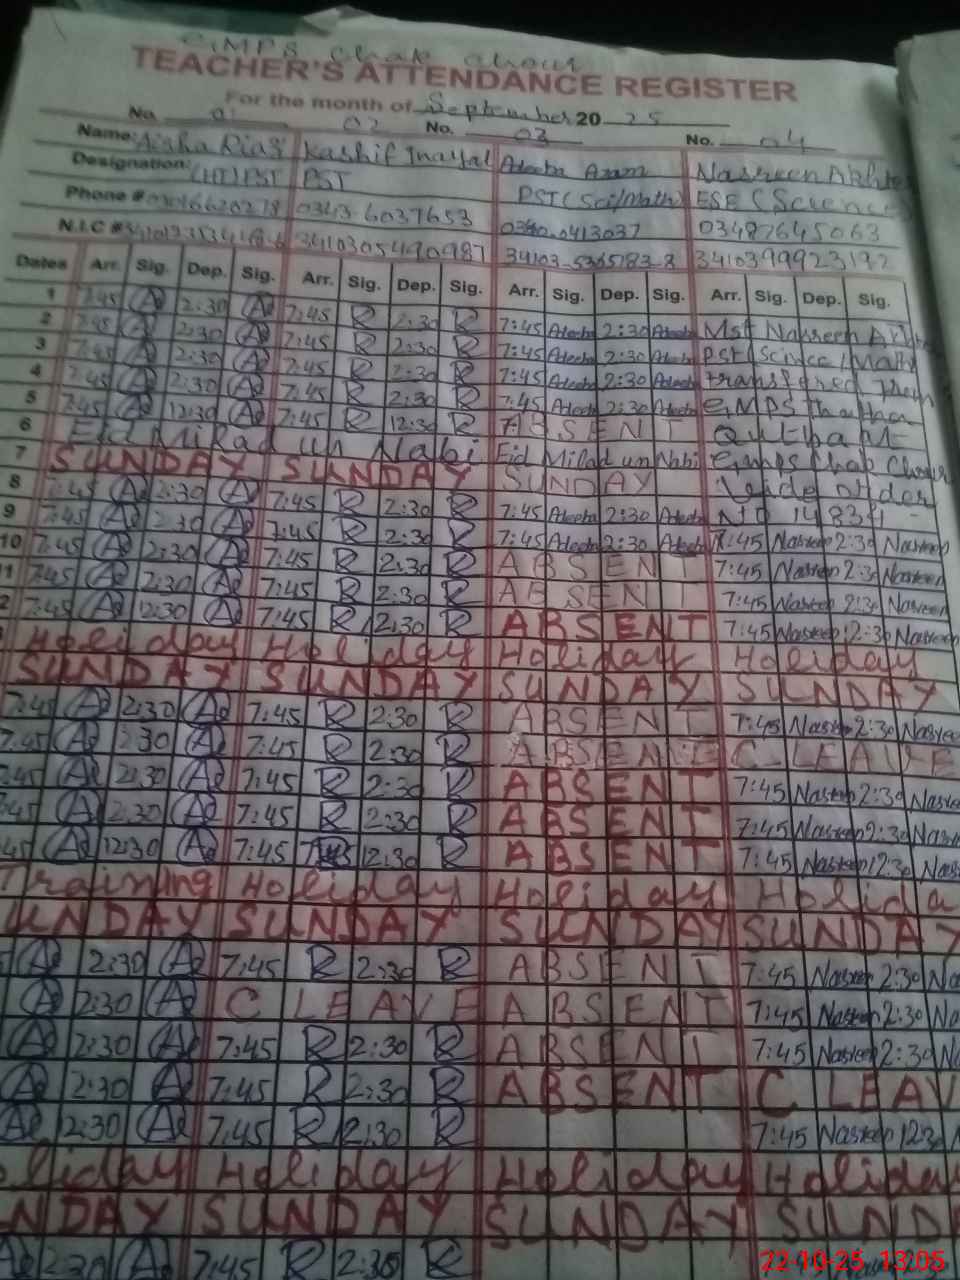 GMPS Chak
TEACHER'S ATTENDANCE REGISTER
For the month of September 20 25
No. 01 02 No. 03 No. 04
Name: Aisha Riaz Kashif Inayat Ateeba Azam Nasreen Akhter
Designation: (HT) PST PST PST (Sci/Math) ESE (Science)
Phone # 0343-6037653 03487645063
N.I.C # 3410305490987 34103-5365783-8 3410399923192
Dates Arr. Sig. Dep. Sig. Arr. Sig. Dep. Sig. Arr. Sig. Dep. Sig. Arr. Sig. Dep. Sig.
1 7:45 A 2:30 A 7:45 R 2:30 R 7:45 Ateeba 2:30 Ateeba Mst Nasreen
2 7:45 A 2:30 A 7:45 R 2:30 R 7:45 Ateeba 2:30 Ateeba PST (Science/Math)
3 7:45 A 2:30 A 7:45 R 2:30 R 7:45 Ateeba 2:30 Ateeba
4 7:45 A 2:30 A 7:45 R 2:30 R 7:45 Ateeba 2:30 Ateeba GMPS
5 7:45 A 12:30 A 7:45 R 12:30 R ABSENT
6 Eid Milad un Nabi Eid Milad un Nabi GMPS Chak
7 SUNDAY SUNDAY SUNDAY order
8 7:45 A 2:30 A 7:45 R 2:30 R 7:45 Ateeba 2:30 Ateeba NO
9 7:45 A 2:30 A 7:45 R 2:30 R 7:45 Ateeba 2:30 Ateeba 7:45 Nasreen 2:30 Nasreen
10 7:45 A 2:30 A 7:45 R 2:30 R ABSENT 7:45 Nasreen 2:30 Nasreen
11 7:45 A 2:30 A 7:45 R 2:30 R ABSENT 7:45 Nasreen 2:30 Nasreen
2 7:45 A 12:30 A 7:45 R 12:30 R ABSENT 7:45 Nasreen 12:30 Nasreen
Holiday Holiday Holiday Holiday
SUNDAY SUNDAY SUNDAY SUNDAY
7:45 A 2:30 A 7:45 R 2:30 R ABSENT 7:45 Nasreen 2:30 Nasree
7:45 A 2:30 A 7:45 R 2:30 R ABSENT C LEAVE
7:45 A 2:30 A 7:45 R 2:30 R ABSENT 7:45 Nasreen 2:30 Nasre
:45 A 2:30 A 7:45 R 2:30 R ABSENT 7:45 Nasreen 2:30 Nas
45 A 12:30 A 7:45 12:30 R ABSENT 7:45 Nasreen 12:30 Nas
Training Holiday Holiday Holida
UNDAY SUNDAY SUNDAY SUNDAY
A 2:30 A 7:45 R 2:30 R ABSENT 7:45 Nasreen 2:30 Na
A 2:30 A C LEAVE ABSENT 7:45 Nasreen 2:30 Na
A 2:30 A 7:45 R 2:30 R ABSENT 7:45 Nasreen 2:30 N
A 2:30 A 7:45 R 2:30 R ABSENT C LEAV
A 12:30 A 7:45 R 12:30 R 7:45 Nasreen 12:30 N
oliday Holiday Holiday Holiday
NDAY SUNDAY SUNDAY SUNDA
A 2:30 A 7:45 R 2:30 R
22-10-25 13:05